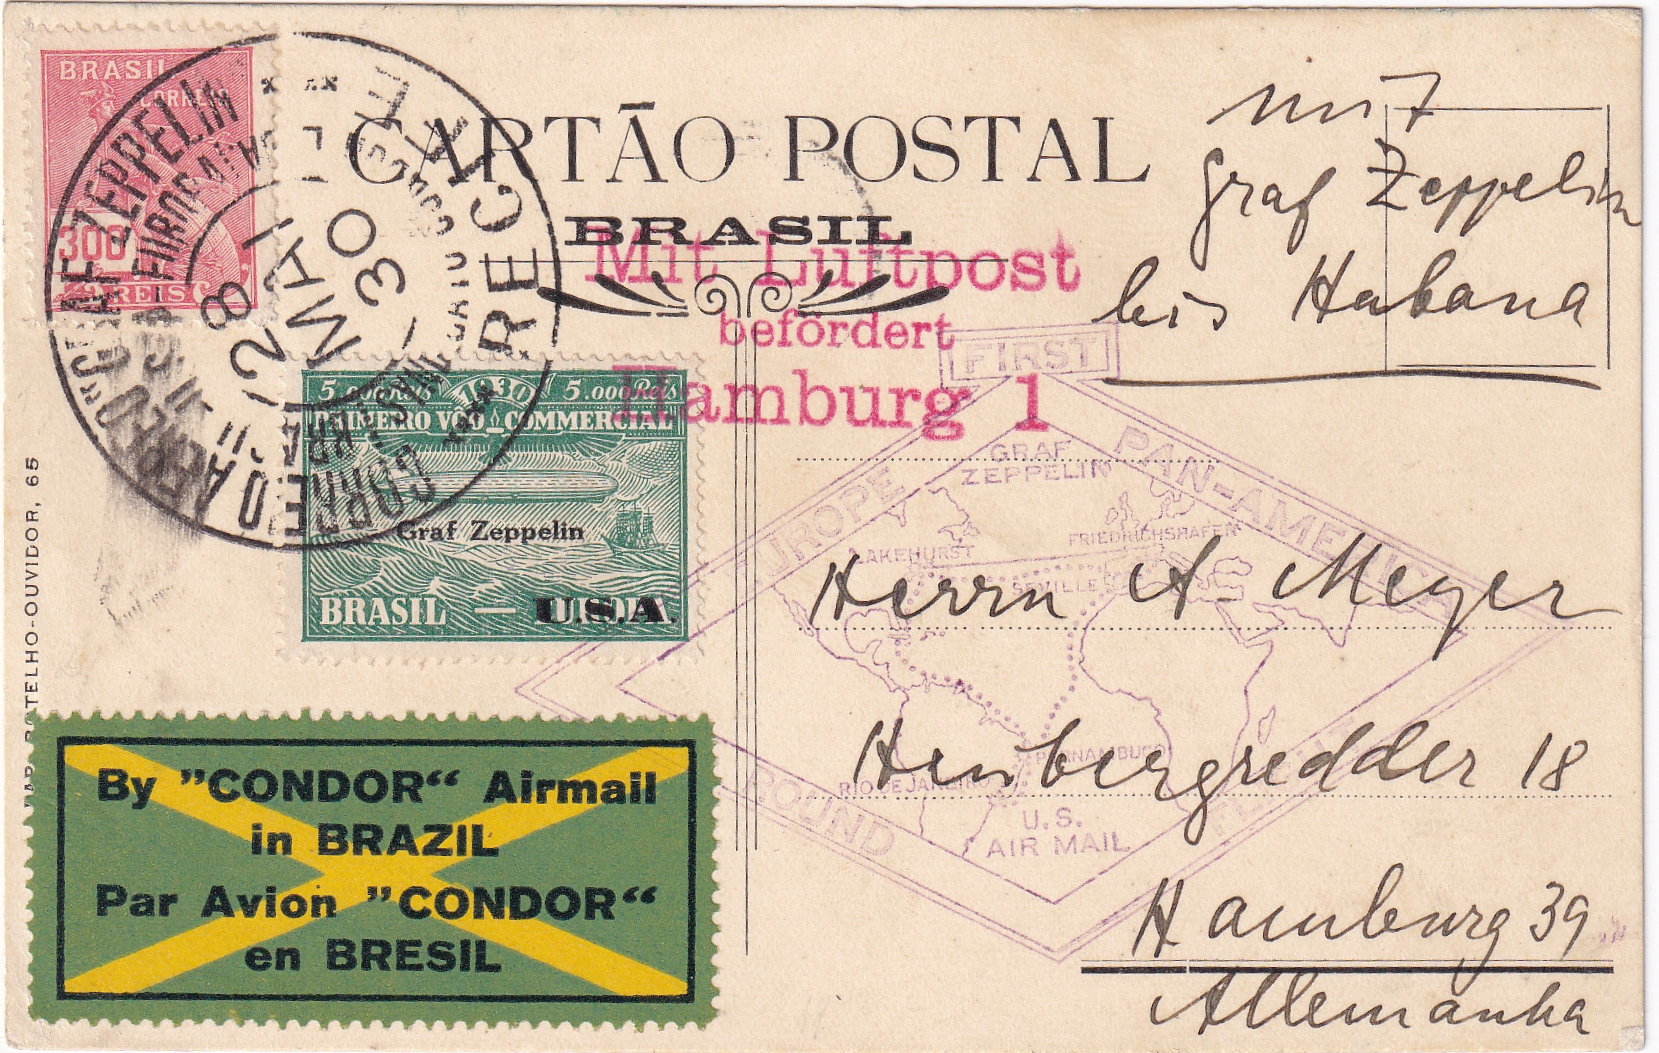 BRASIL
CORREIO
300
REIS
"GRAF ZEPPELIN"
28 MAI 30
RECIFE
CARTÃO POSTAL
BRASIL
mit
Graf Zeppelin
bis Habana
Mit Luftpost
befördert
Hamburg 1
5.000 Reis 1930 5.000 Reis
PRIMEIRO VÔO COMMERCIAL
Graf Zeppelin
BRASIL — U.S.A.
FIRST
EUROPE PAN-AMERICA
ROUND FLIGHT
GRAF
ZEPPELIN
LAKEHURST
FRIEDRICHSHAFEN
SEVILLE
PERNAMBUCO
RIO DE JANEIRO
U.S.
AIR MAIL
Herrn A Meyer
18
Hamburg 39
Allemanha
BOTELHO-OUVIDOR, 65
By "CONDOR" Airmail
in BRAZIL
Par Avion "CONDOR"
en BRESIL